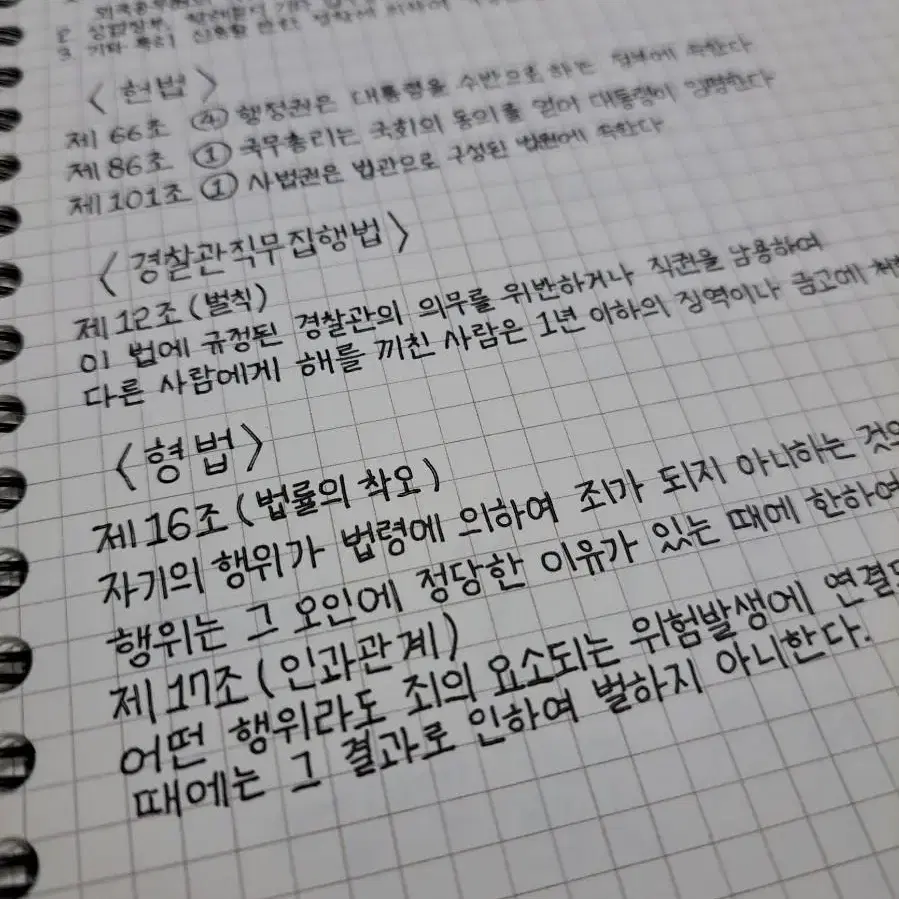 <헌법>
제 66조 ④ 행정권은 대통령을 수반으로 하는 정부에 속한다
제 86조 ① 국무총리는 국회의 동의를 얻어 대통령이 임명한다
제 101조 ① 사법권은 법관으로 구성된 법원에 속한다
<경찰관직무집행법>
제 12조 (벌칙)
이 법에 규정된 경찰관의 의무를 위반하거나 직권을 남용하여
다른 사람에게 해를 끼친 사람은 1년 이하의 징역이나 금고에
<형법>
제 16조 (법률의 착오)
자기의 행위가 법령에 의하여 죄가 되지 아니하는 것으
행위는 그 오인에 정당한 이유가 있는 때에 한하여
제 17조 (인과관계)
어떤 행위라도 죄의 요소되는 위험발생에 연결되
때에는 그 결과로 인하여 벌하지 아니한다.